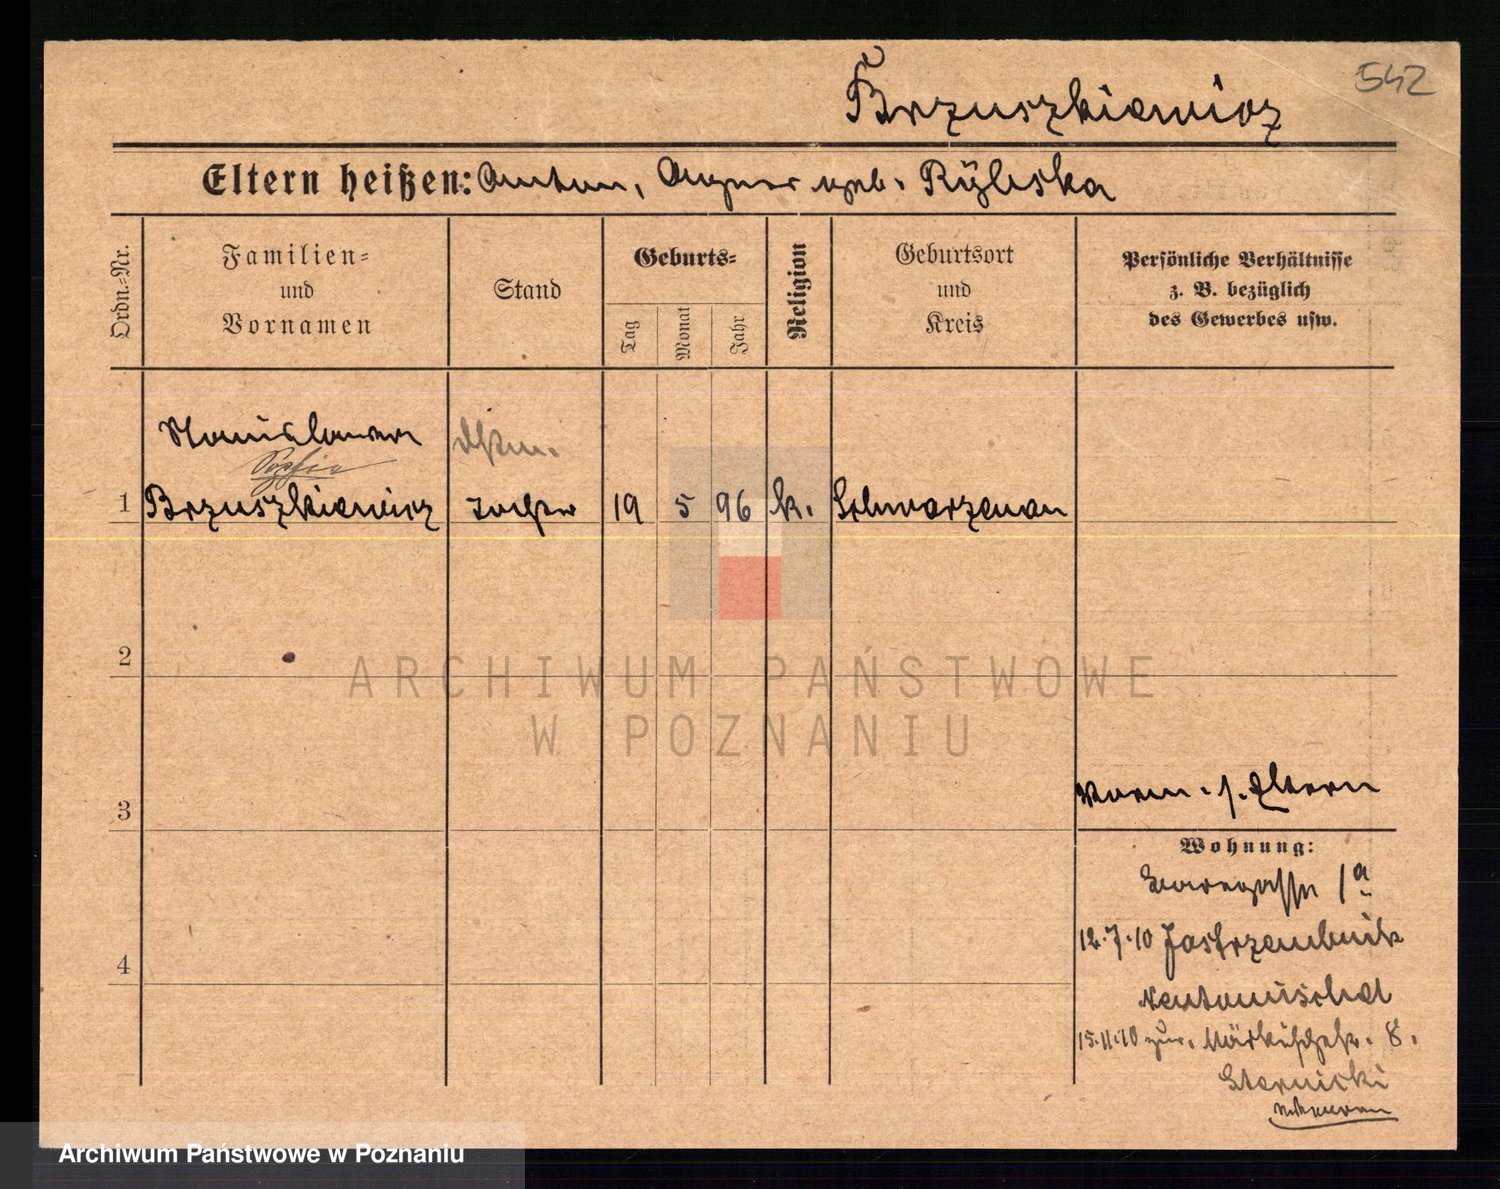 542
Brzuszkiewicz
Eltern heißen: Anton, Agnes geb. Rÿbska
Ordn.=Nr.
Familien=
und
Vornamen
Stand
Geburts=
Tag
Monat
Jahr
Religion
Geburtsort
und
Kreis
Persönliche Verhältnisse
z. B. bezüglich
des Gewerbes usw.
Stanislawa
Sophia
1 Brzuszkiewicz Tochter 19 5 96 k. Schwarzenau
2
3
4
s. Eltern
Wohnung:
1a
12.7.10 Jastrzembnik
Neutomischel
15.11.10 zur. Märkischestr. 8.
ARCHIWUM PAŃSTWOWE
W POZNANIU
Archiwum Państwowe w Poznaniu